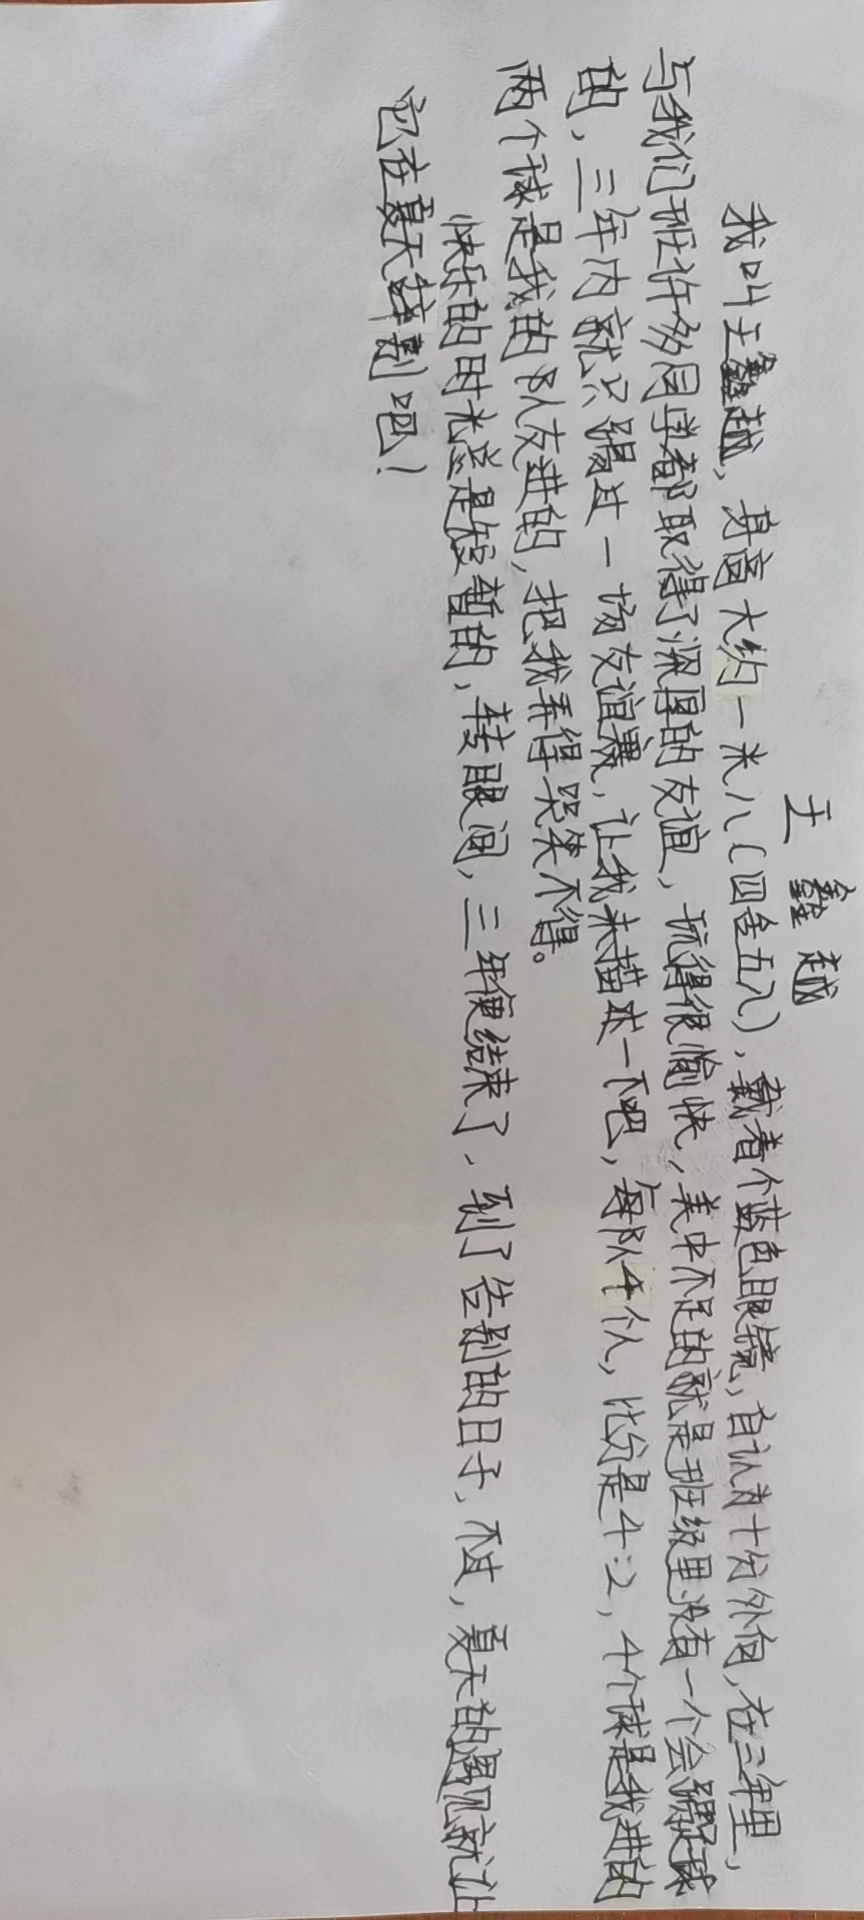 王鑫越
我叫王鑫越，身高大约一米八（四舍五入），戴着个蓝色眼镜，自认为十分外向，在三年里，
与我们班许多同学都取得了深厚的友谊，玩得很愉快，美中不足的就是班级里没有一个会踢足球
的，三年内就只踢过一场友谊赛，让我来描述一下吧，每队4个人，比分是4:2，4个球是我进的
两个球是我的队友进的，把我弄得哭笑不得。
快乐的时光总是短暂的，转眼间，三年便结束了，到了告别的日子，不过，夏天的遇见就让
它在夏天辞别吧！